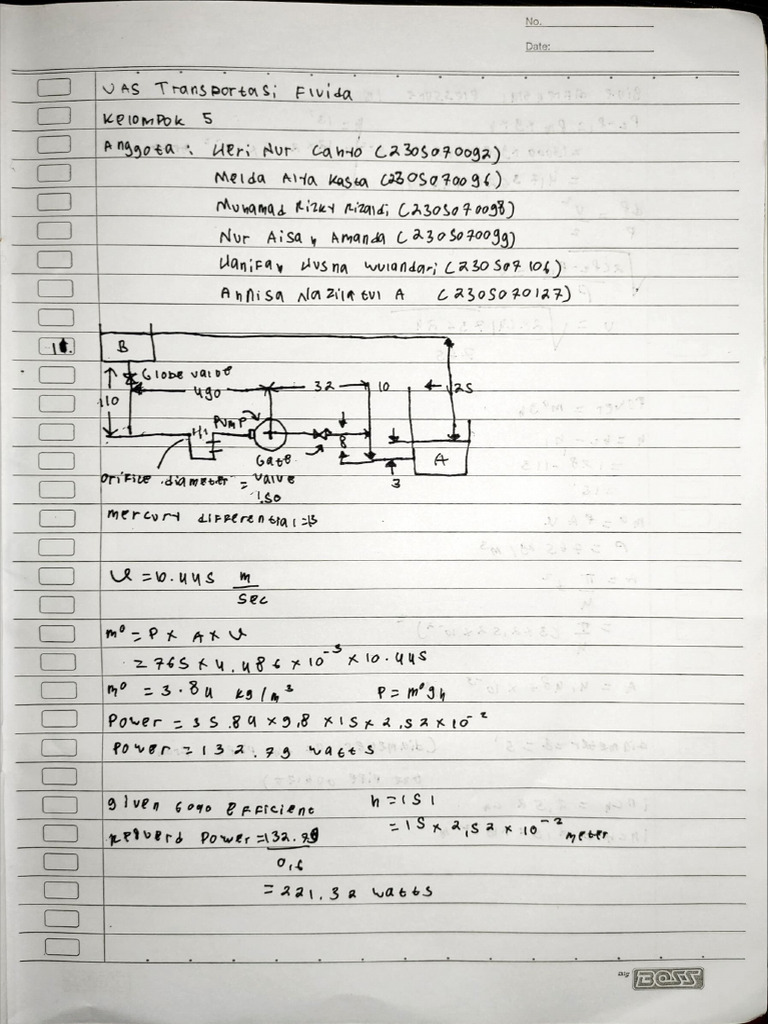 No.
Date:
UAS Transportasi Fluida
Kelompok 5
Anggota : Heri Nur Cahyo (2305070092)
Melda Alya Kasta (2305070096)
Muhamad Rizky Rizaldi (2305070098)
Nur Aisah Amanda (2305070099)
Hanifah Husna Wulandari (230507106)
Annisa Nazilatul A (2305070127)
B
Globe valve
490
32
10
25
110
Pump
8
Gate valve
A
3
Orifice diameter = 1.50
mercury differential = 13
m
sec
m° = P x A x v
= 765 x 4.486 x 10⁻³ x 10.445
m° = 3.84 kg/m³ P = m°gh
Power = 35.84 x 9,8 x 15 x 2,52 x 10⁻²
Power = 132.79 watts
Efficient h = 151
= 15 x 2,52 x 10⁻² meter
Power = 132.79
0,6
= 221.32 watts
BOSS